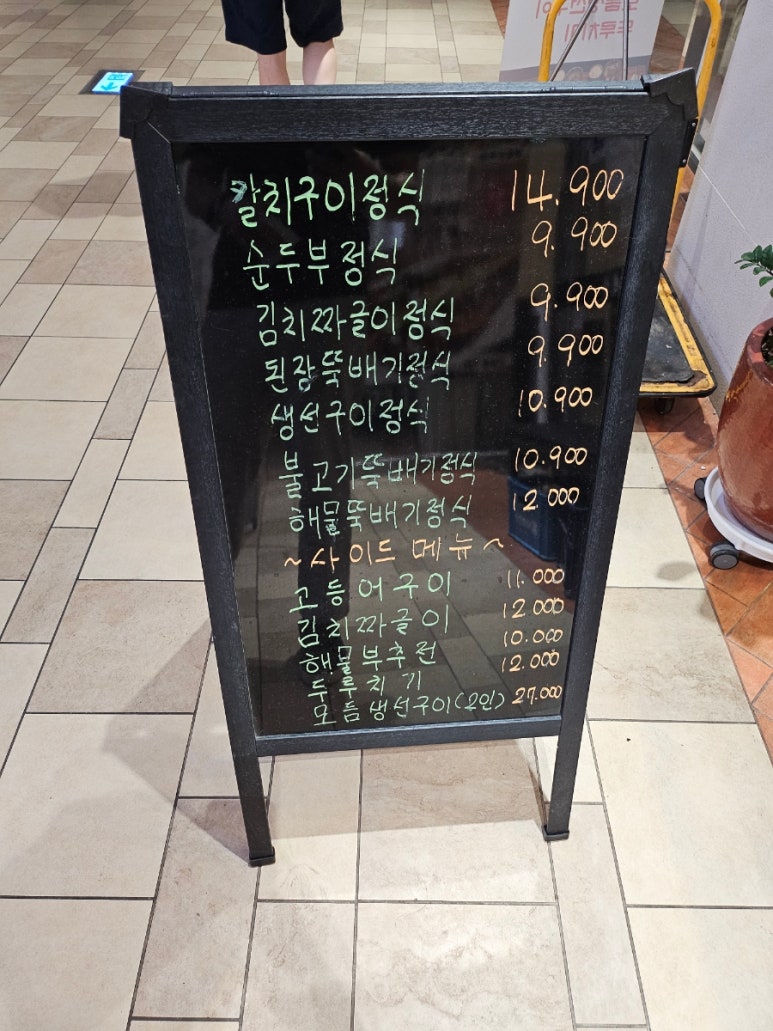 칼치구이정식 14.900
순두부정식 9.900
김치짜글이정식 9.900
된장뚝배기정식 9.900
생선구이정식 10.900
불고기뚝배기정식 10.900
해물뚝배기정식 12.000
~사이드 메뉴~
고등어구이 11.000
김치짜글이 12.000
해물부추전 10.000
두루치기 12.000
모듬생선구이(2인) 27.000
두루치기